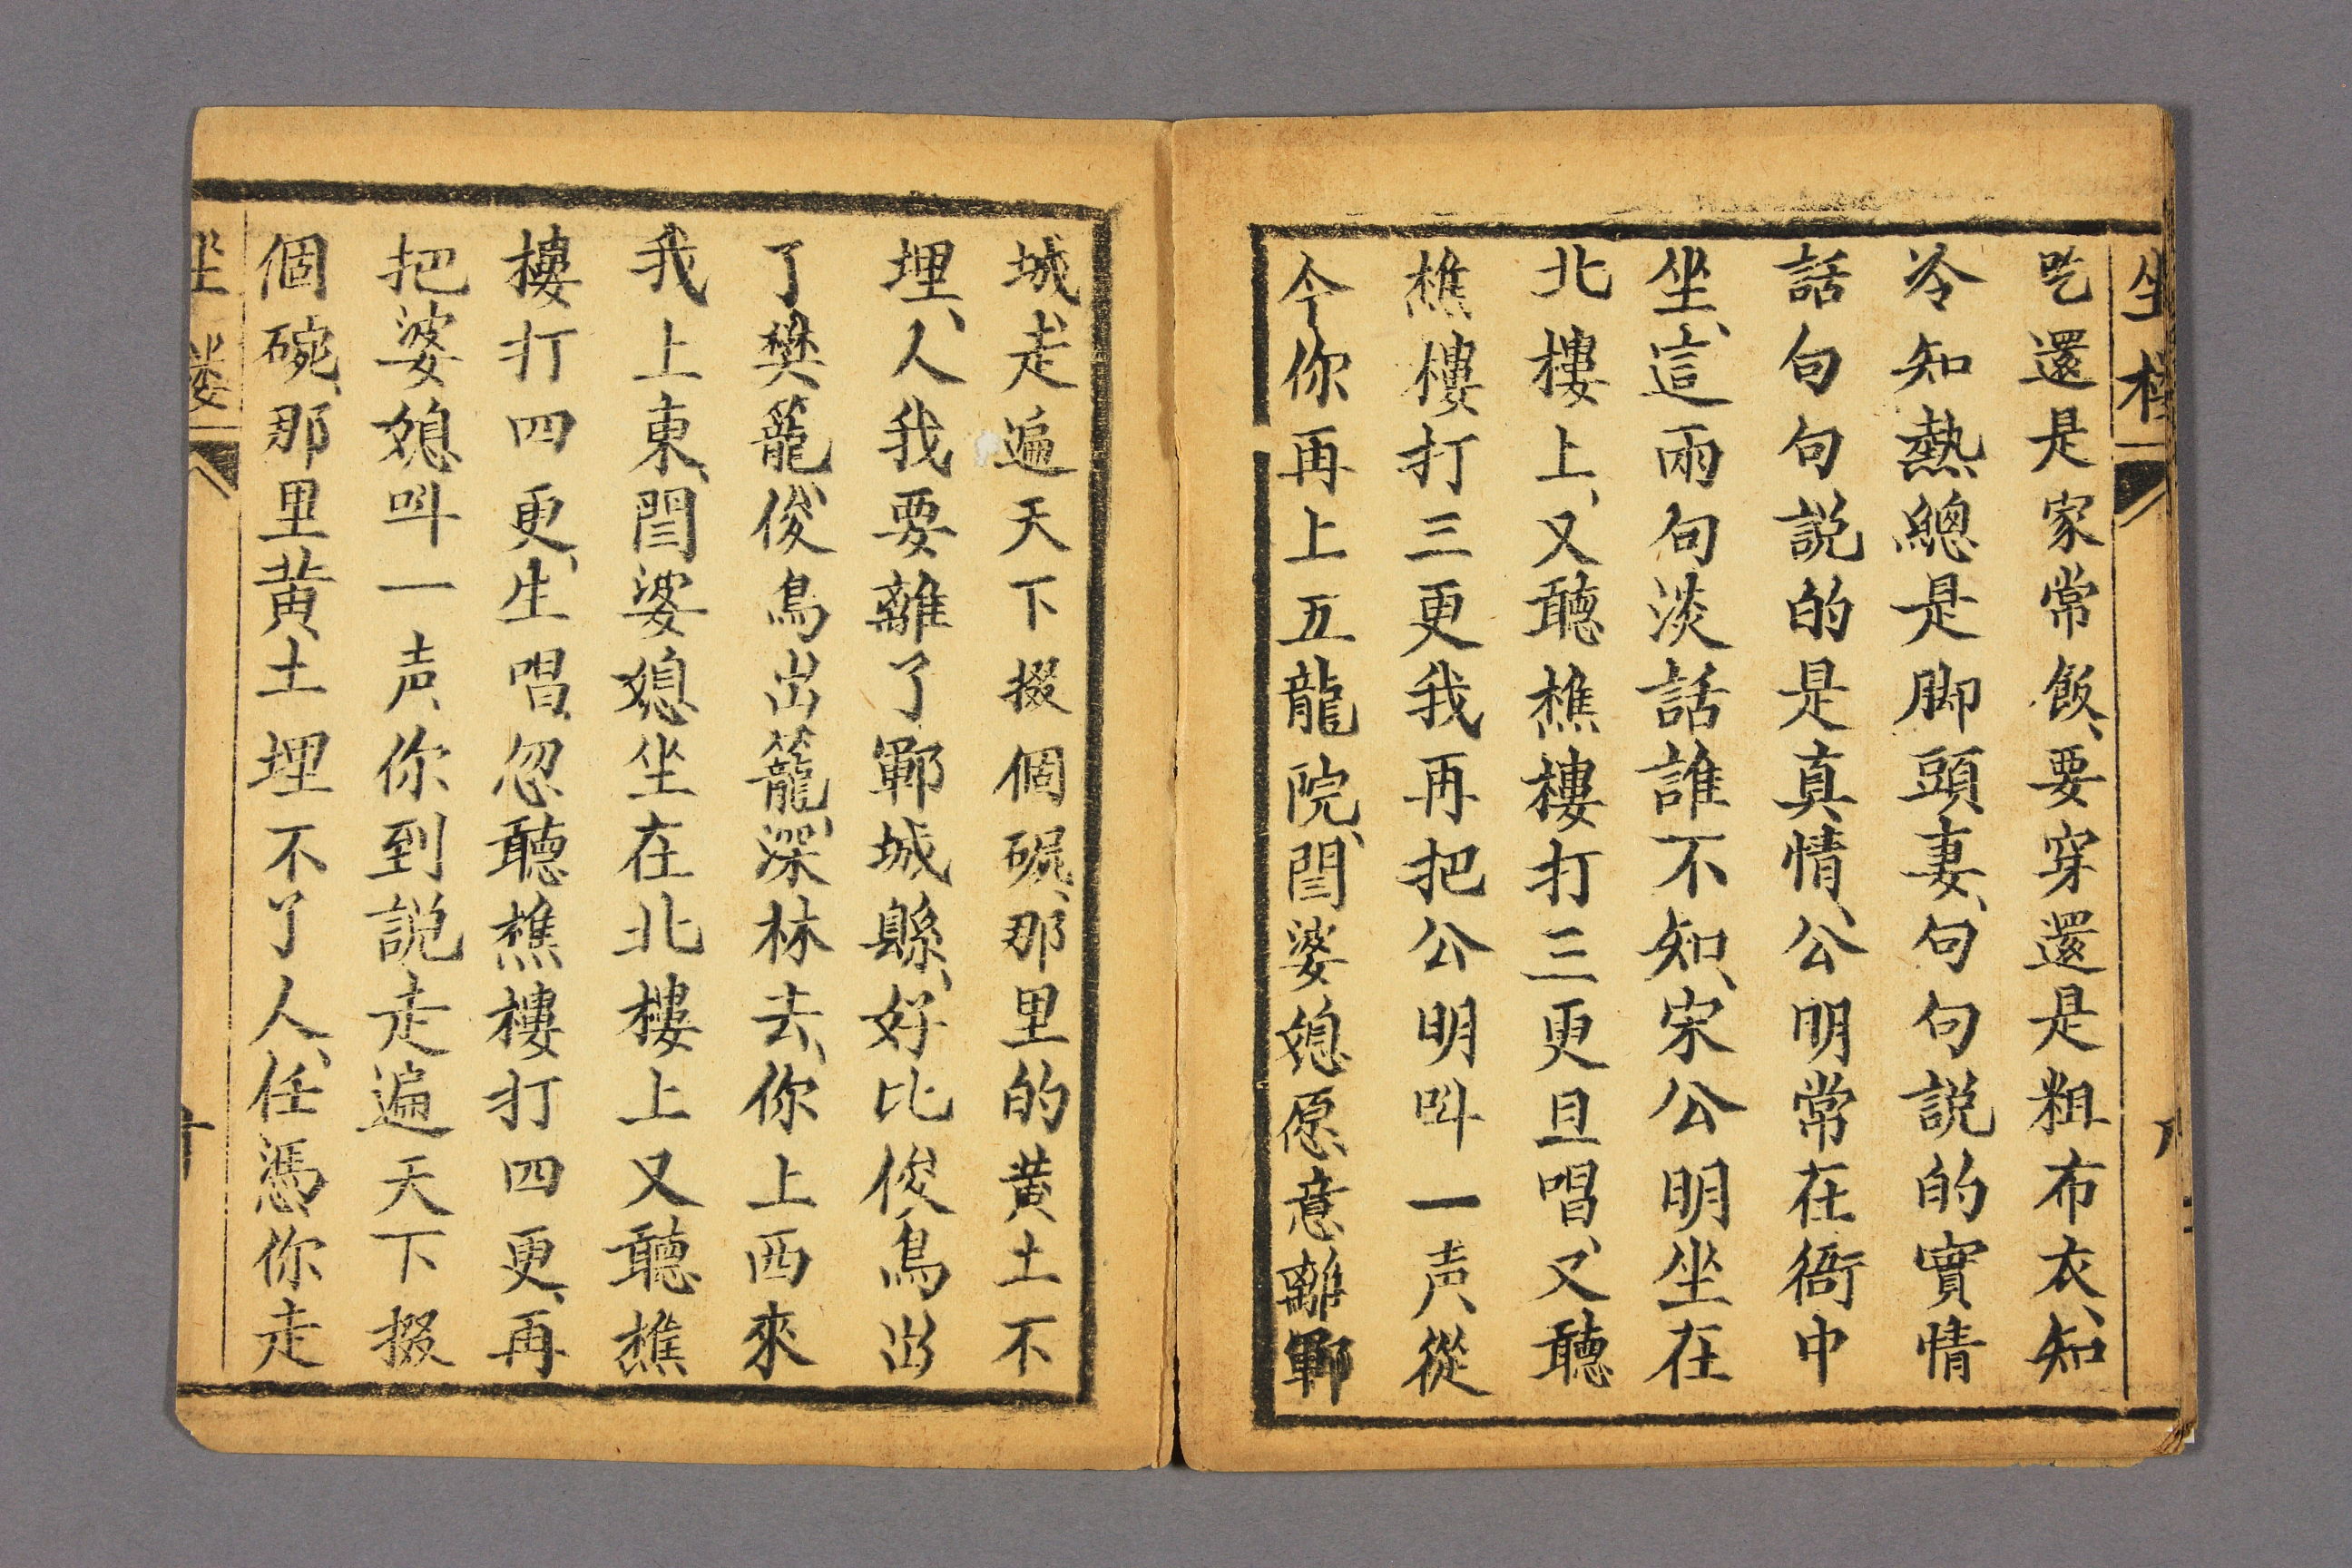 坐樓
吃還是家常飯、要穿還是粗布衣、知
冷知熱總是脚頭妻、句句説的實情
話句句説的是真情、公明常在衙中
坐、這兩句淡話誰不知、宋公明坐在
北樓上、又聽樵樓打三更旦唱、又聽
樵樓打三更我再把公明呌一声、從
今你再上五龍院、閆婆媳愿意離鄆
城、走遍天下掇個碗、那里的黄土不
埋、人我要離了鄆城縣、好比俊鳥出
了樊籠、俊鳥出籠、深林去、你上西來
我上東、閆婆媳坐在北樓上又聽樵
樓打四更、生唱、忽聽樵樓打四更、再
把婆媳呌一声、你到説走遍天下掇
個碗、那里黄土埋不了人、任憑你走
坐楼
十